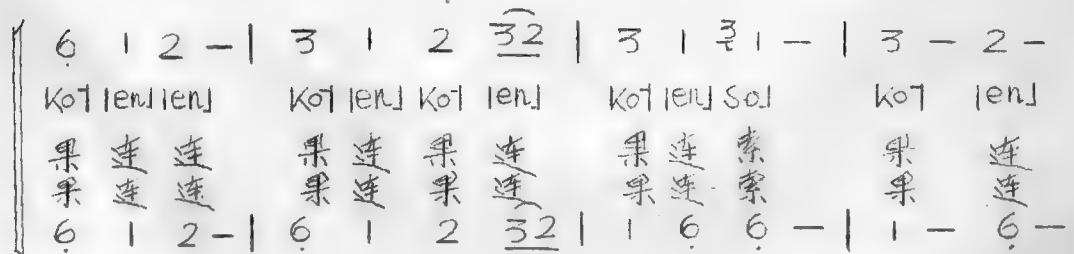 6̣ 1 2 – | 3 1 2 3͡2 | 3 1 ³1 – | 3 – 2 –
ko˥ len˩ len˩ ko˥ len˩ ko˥ len˩ ko˥ len˩ so˩ ko˥ len˩
果 连 连 果 连 果 连 果 连 索 果 连
果 连 连 果 连 果 连 果 连 索 果 连
6̣ 1 2 – | 6̣ 1 2 32 | 1 6̣ 6̣ – | 1 – 6̣ –